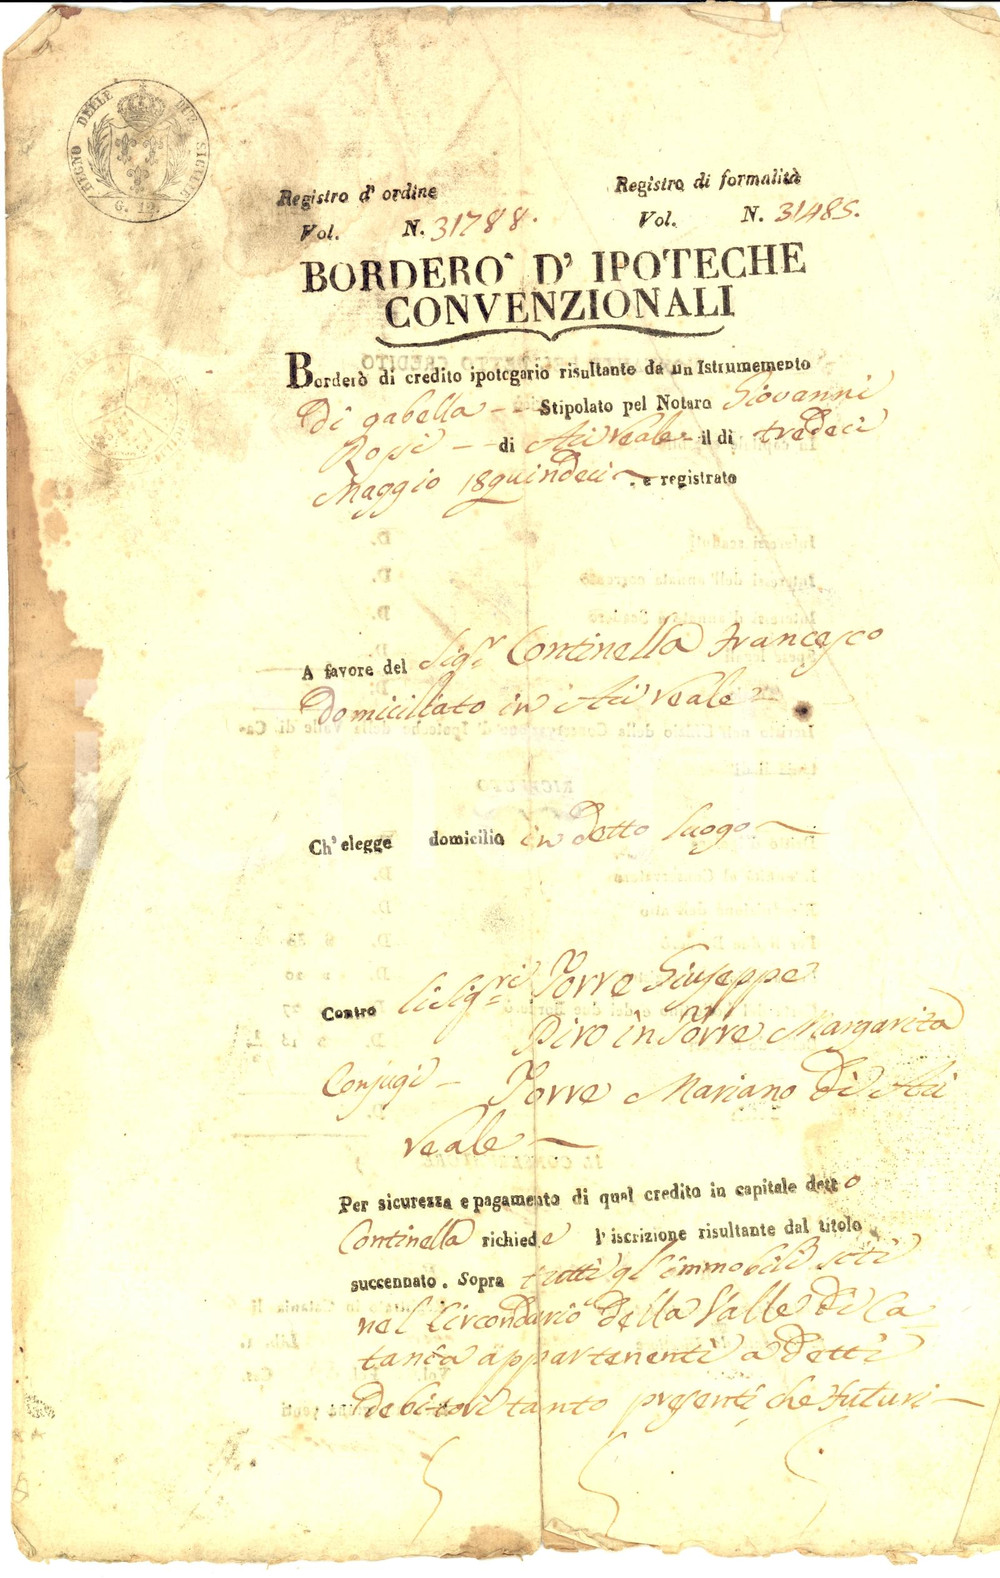 REGNO DELLE DUE SICILIE
G. 12.
Registro d' ordine
Registro di formalità
Vol. N. 31788.
Vol. N. 31485.
BORDERO` D' IPOTECHE
CONVENZIONALI
Borderò di credito ipotegario risultante da un Istrumemento
Di gabella - Stipolato pel Notaro Giovanni
Rossi - di Aci reale - il dì tredeci
Maggio 18quindeci . e registrato
A favore del Sig.r Continella Francesco
Domiciliato in Aci reale
Ch' elegge domicilio in detto luogo
Contro li Sig.ri Torre Giuseppe
Piro in Torre Margarita
Conjugi - Torre Mariano di Aci
reale
Per sicurezza e pagamento di qual credito in capitale detto
Continella richiede l' iscrizione risultante dal titolo
succennato. Sopra tutti gl'immobili siti
nel Circondario della Valle di Ca-
tania appartenenti a detti
debitori tanto presenti, che futuri